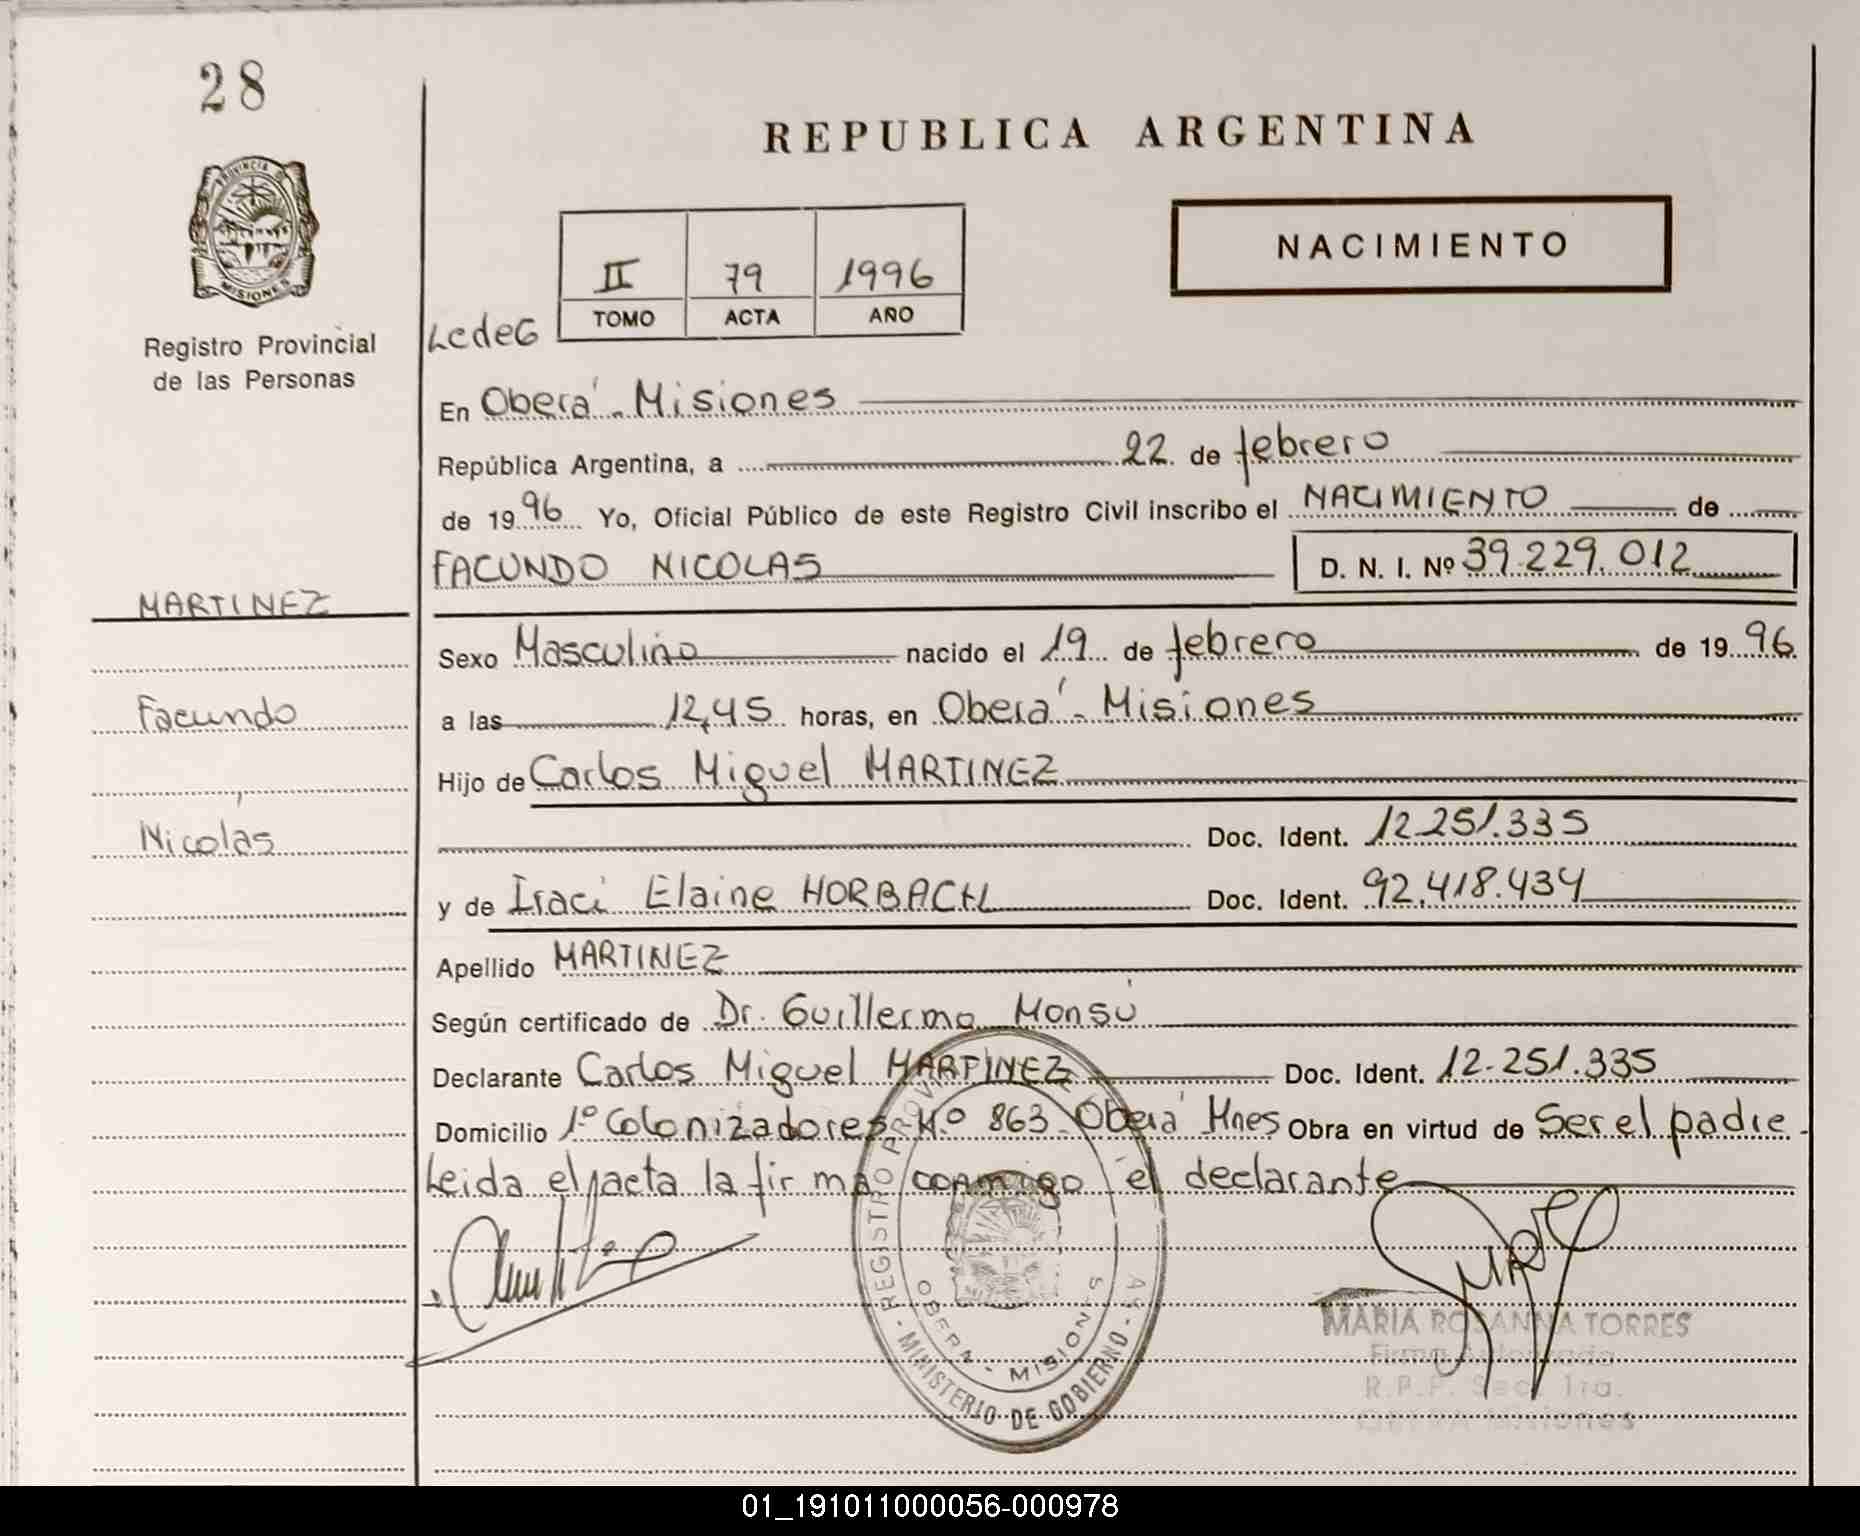 28
REPUBLICA ARGENTINA
PROVINCIA D
MISIONES
Registro Provincial
de las Personas
II 79 1996
TOMO ACTA AÑO
NACIMIENTO
LcdeG
En Oberá - Misiones
República Argentina, a 22 de febrero
de 1996 Yo, Oficial Público de este Registro Civil inscribo el NACIMIENTO de
FACUNDO NICOLAS D. N. I. Nº 39.229.012
MARTINEZ
Sexo Masculino nacido el 19 de febrero de 1996
Facundo
a las 12,45 horas, en Oberá - Misiones
Hijo de Carlos Miguel MARTINEZ
Nicolás
Doc. Ident. 12.251.335
y de Iraci Elaine HORBACH Doc. Ident. 92.418.434
Apellido MARTINEZ
Según certificado de Dr. Guillermo Monsú
Declarante Carlos Miguel MARTINEZ Doc. Ident. 12.251.335
Domicilio 1º Colonizadores Nº 863 Oberá Mnes Obra en virtud de Ser el padre -
Leida el acta la firma conmigo el declarante
REGISTRO PROVIN AS - MINISTERIO DE GOBIERNO -
OBERA - MISIONES
MARIA ROSANNA TORRES
Firma Autorizada
R.P.P. Sec. 1ra.
OBERA Misiones
01_191011000056-000978